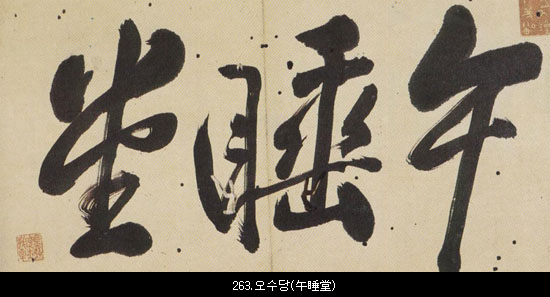 午睡堂
263.오수당(午睡堂)